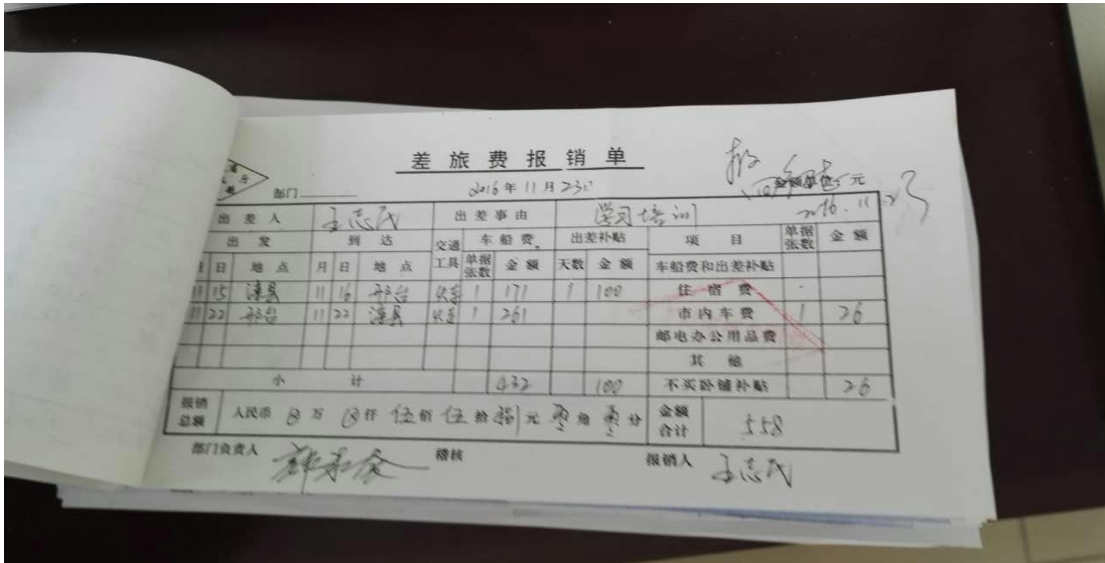 差旅费报销单
报
部门 2016年11月23日 金额单位:元
2016.11.23
出差人 王志民 出差事由 学习培训
出发 到达 交通工具 车船费 出差补贴 项目 单据张数 金额
月 日 地点 月 日 地点 单据张数 金额 天数 金额 车船费和出差补贴
11 15 滦县 11 16 邢台 火车 1 171 1 100 住宿费
11 22 邢台 11 22 滦县 火车 1 261 市内车费 1 26
邮电办公用品费
其他
小计 432 100 不买卧铺补贴 26
报销总额 人民币 万 仟 伍佰 伍拾捌元 零角 零分 金额合计 558
部门负责人 稽核 报销人 王志民